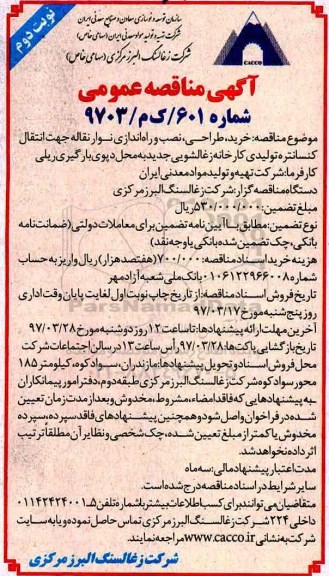 نوبت دوم
سازمان توسعه و نوسازی معادن و صنایع معدنی ایران
شرکت تهیه و تولید مواد معدنی ایران (سهامی خاص)
شرکت زغالسنگ البرز مرکزی (سهامی خاص)
CACCO
آگهی مناقصه عمومی
شماره ۶۰۱/ک م/۹۷۰۳
موضوع مناقصه: خرید، طراحی، نصب و راه اندازی نوار نقاله جهت انتقال
کنسانتره تولیدی کارخانه زغالشویی جدید به محل دپوی بارگیری ریلی
کارفرما: شرکت تهیه و تولید مواد معدنی ایران
دستگاه مناقصه گزار: شرکت زغالسنگ البرز مرکزی
مبلغ تضمین: ۵۳۰/۰۰۰/۰۰۰ ریال
نوع تضمین: مطابق با آیین نامه تضمین برای معاملات دولتی (ضمانت نامه
بانکی، چک تضمین شده بانکی یا وجه نقد)
هزینه خرید اسناد مناقصه: ۷۰۰/۰۰۰ (هفتصد هزار) ریال واریز به حساب
شماره ۰۱۰۶۱۲۲۹۶۶۰۰۸ بانک ملی شعبه آزادمهر
تاریخ فروش اسناد مناقصه: از تاریخ چاپ نوبت اول لغایت پایان وقت اداری
روز پنج شنبه مورخ ۹۷/۰۳/۱۷
آخرین مهلت ارائه پیشنهادها: تا ساعت ۱۲ روز دوشنبه مورخ ۹۷/۰۳/۲۸
تاریخ بازگشایی پاکت ها: ۹۷/۰۳/۲۸ رأس ساعت ۱۳ در سالن اجتماعات شرکت
محل فروش اسناد و تحویل پیشنهادها: مازندران، سوادکوه، کیلومتر ۱۸۵
محور سوادکوه شرکت زغالسنگ البرز مرکزی طبقه دوم، دفتر امور پیمانکاران
به پیشنهادهایی که فاقد امضاء، مشروط، مخدوش و بعد از مدت زمان تعیین
شده در فراخوان واصل شود و همچنین پیشنهادهای فاقد سپرده، سپرده
مخدوش یا کمتر از مبلغ تعیین شده، چک شخصی و نظایر آن مطلقاً ترتیب
اثر داده نخواهد شد.
مدت اعتبار پیشنهاد مالی: سه ماه
سایر شرایط در اسناد مناقصه درج شده است.
متقاضیان می توانند برای کسب اطلاعات بیشتر با شماره تلفن ۵-۰۱۱۴۲۴۲۴۰۰۱
داخلی ۲۲۴ شرکت زغالسنگ البرز مرکزی تماس حاصل نموده و یا به سایت
شرکت به نشانی www.cacco.ir مراجعه نمایند.
شرکت زغالسنگ البرز مرکزی